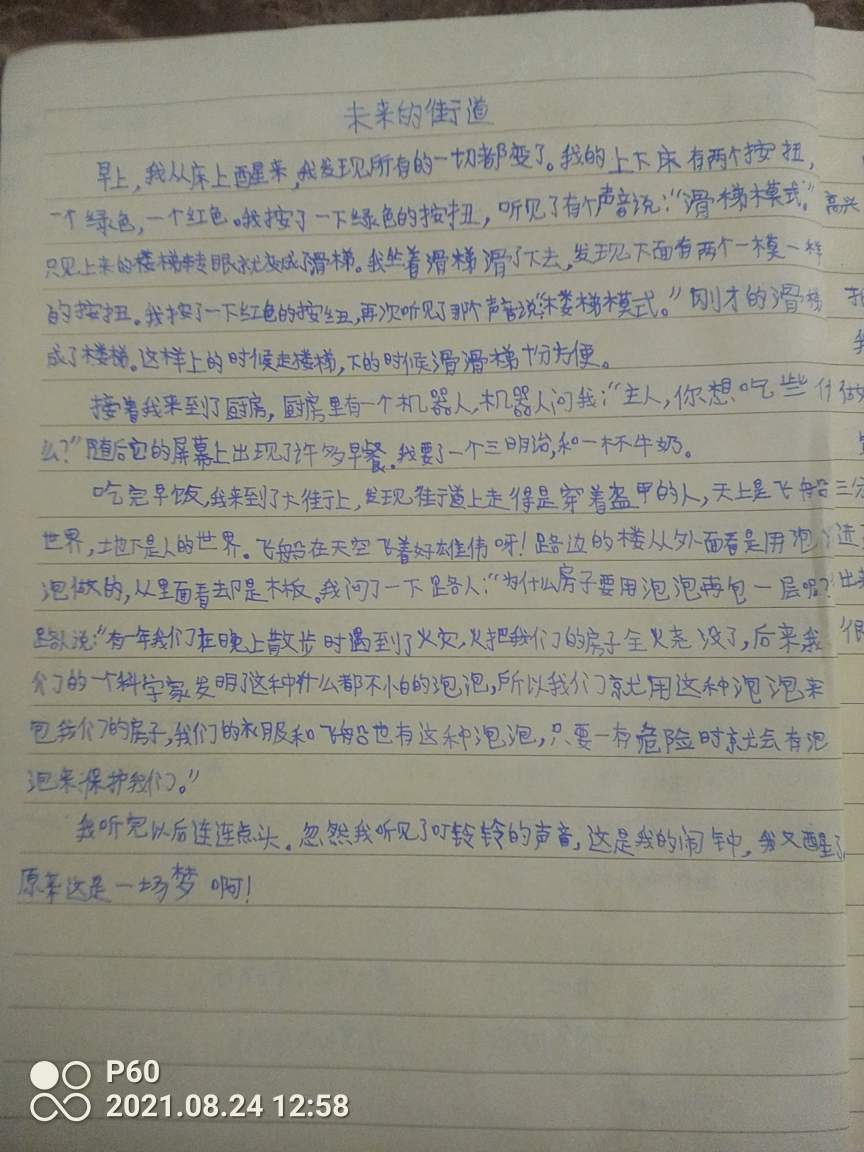 未来的街道
早上，我从床上醒来，我发现所有的一切都变了。我的上下床有两个按扭，
一个绿色，一个红色。我按了一下绿色的按扭，听见了有个声音说：“滑梯模式。”
高兴
只见上来的楼梯转眼就变成了滑梯。我坐着滑梯滑了下去，发现下面有两个一模一样
的按扭。我按了一下红色的按纽，再次听见了那个声音说“楼梯模式。”刚才的滑梯
成了楼梯。这样上的时候走楼梯，下的时候滑滑梯十分方便。
接着我来到了厨房，厨房里有一个机器人，机器人问我：“主人，你想吃些什
做
么？”随后它的屏幕上出现了许多早餐。我要了一个三明治，和一杯牛奶。
吃完早饭，我来到了大街上，发现街道上走得是穿着盔甲的人，天上是飞船
三分
世界，地下是人的世界。飞船在天空飞着好雄伟呀！路边的楼从外面看是用泡
进
泡做的，从里面看却是木板。我问了一下路人：“为什么房子要用泡泡再包一层呢？
出来
路人说：“有一年我们在晚上散步时遇到了火灾，火把我们的房子全火烧没了，后来我
很
们的一个科学家发明了这种什么都不怕的泡泡，所以我们就用这种泡泡来
包我们的房子，我们的衣服和飞船也有这种泡泡，只要一有危险时就会有泡
泡来保护我们。”
我听完以后连连点头。忽然我听见了叮铃铃的声音，这是我的闹钟，我又醒了
原来这是一场梦啊！
P60
2021.08.24 12:58